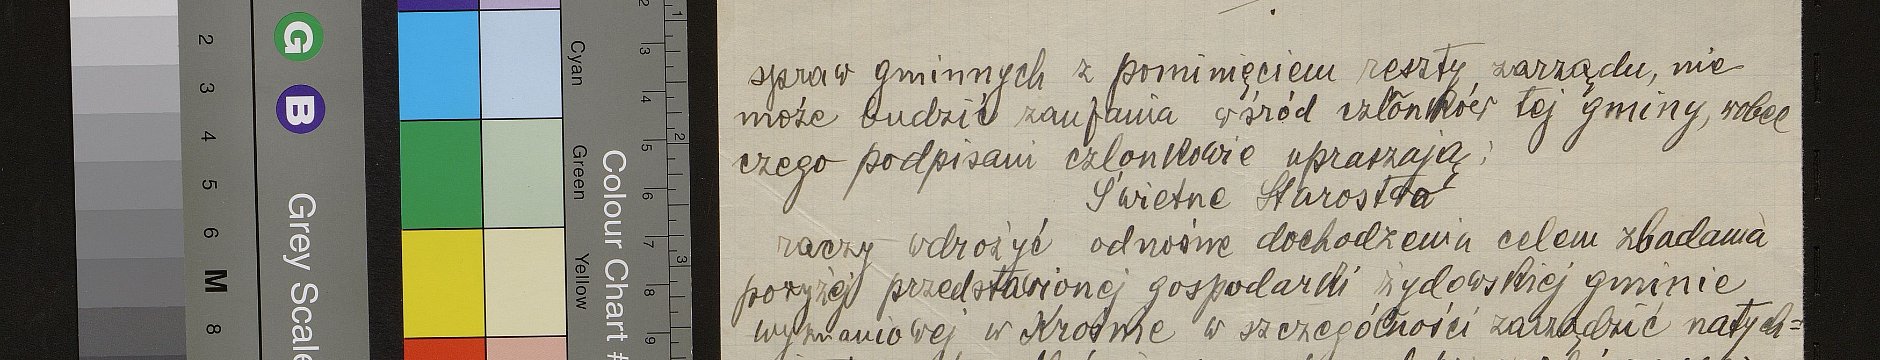 2
3
4
5
6
M
8
G
B
Grey Scale
Cyan
Green
Yellow
Colour Chart #
2
1
3
4
2
5
6
7
3
8
9
spraw gminnych z pominięciem reszty zarządu, nie
może budzić zaufania wśród członków tej gminy, wobec
czego podpisani członkowie upraszają:
Świetne Starostwo
raczy wdrożyć odnośne dochodzenia celem zbadania
powyżej przedstawionej gospodarki żydowskiej gminie
wyznaniowej w Krośnie w szczególności zarządzić natych=